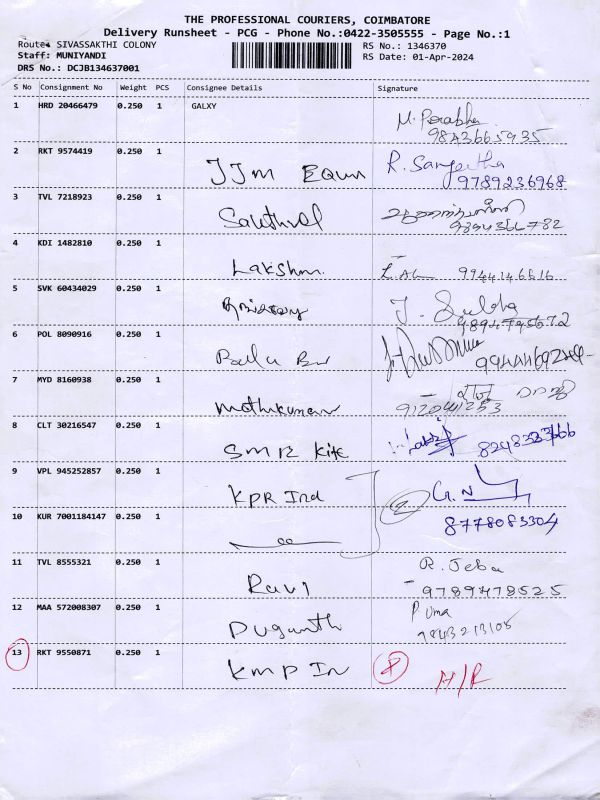 THE PROFESSIONAL COURIERS, COIMBATORE
Delivery Runsheet - PCG - Phone No.:0422-3505555 - Page No.:1
Route: SIVASSAKTHI COLONY RS No.: 1346370
Staff: MUNIYANDI RS Date: 01-Apr-2024
DRS No.: DCJB134637001
S No Consignment No Weight PCS Consignee Details Signature
1 HRD 20466479 0.250 1 GALXY M. Prabha
9843665935
2 RKT 9574419 0.250 1 JJM Equn R. Sangeetha
9789236968
3 TVL 7218923 0.250 1
4 KDI 1482810 0.250 1 Lakshm. 9944146616
5 SVK 60434029 0.250 1 J. Subha
9894795672
6 POL 8090916 0.250 1 Balu
7 MYD 8160938 0.250 1 mathikumar
912041253
8 CLT 30216547 0.250 1 SMR Kite
9 VPL 945252857 0.250 1 KPR Ind 2 G.N
10 KUR 7001184147 0.250 1 8778083304
11 TVL 8555321 0.250 1 Ravi R. Jeba
9789478525
12 MAA 572008307 0.250 1 P Uma
13 RKT 9550871 0.250 1 KMP In H/R